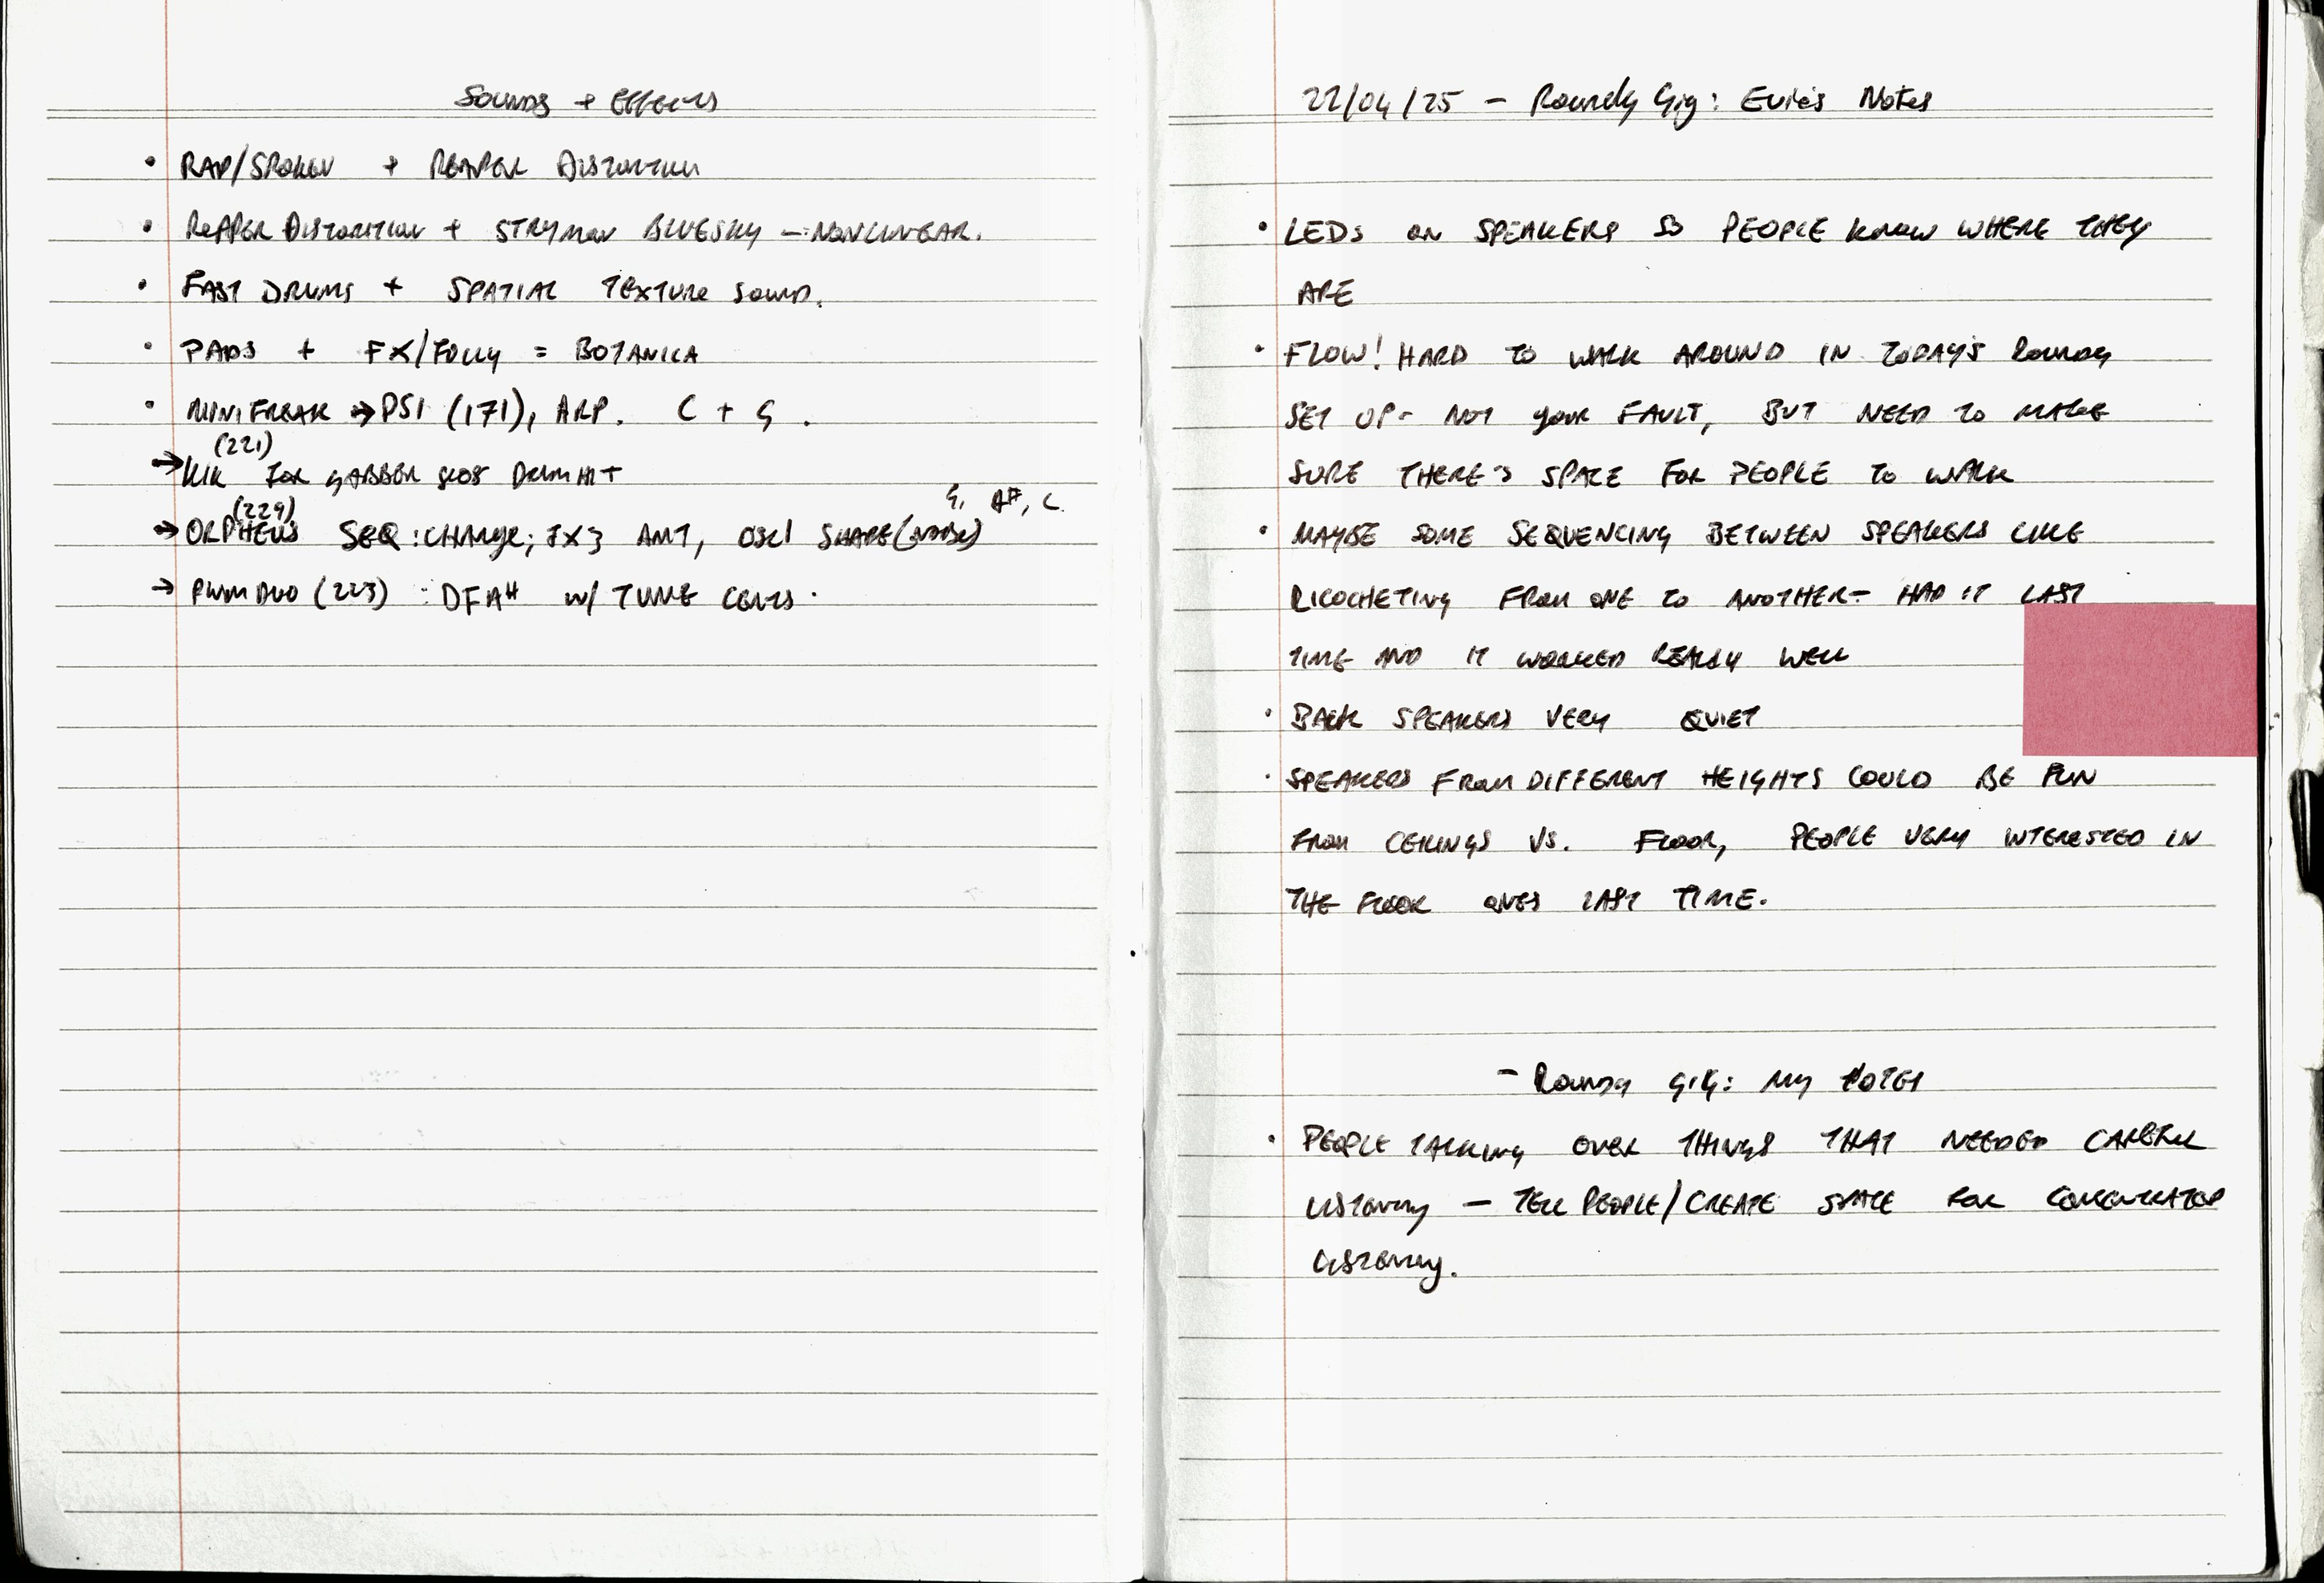 Sounds + Effects
• RAP/SPOKEN + REAPER DISTORTION
• REAPER DISTORTION + STRYMON BLUESKY – NONLINEAR.
• FAST DRUMS + SPATIAL TEXTURE SOUND.
• PADS + FX/FOLLY = BOTANICA
• MINIFREAK → PSI (171), ARP. C + G.
(221)
→ KIK FOR GABBER DRUM HIT
(229) G, A#, C
→ ORPHEUS SEQ: CHANGE; FX3 AMT, OSC1 SHAPE
→ PWM DUO (223) : DFAM W/ TUNE CENTS.
22/04/25 – Roundy Gig: Evie's Notes
• LEDs ON SPEAKERS SO PEOPLE KNOW WHERE THEY
ARE
• FLOW! HARD TO WALK AROUND IN TODAY'S ROUNDY
SET UP - NOT YOUR FAULT, BUT NEED TO MAKE
SURE THERE'S SPACE FOR PEOPLE TO WALK
• MAYBE SOME SEQUENCING BETWEEN SPEAKERS LIKE
RICOCHETING FROM ONE TO ANOTHER - HAD IT LAST
TIME AND IT WORKED REALLY WELL
• BACK SPEAKERS VERY QUIET
• SPEAKERS FROM DIFFERENT HEIGHTS COULD BE FUN
FROM CEILINGS VS. FLOOR, PEOPLE VERY INTERESTED IN
THE FLOOR ONES LAST TIME.
– Roundy Gig: My Notes
• PEOPLE TALKING OVER THINGS THAT NEEDED CAREFUL
LISTENING – TELL PEOPLE/CREATE SPACE FOR CONCENTRATED
LISTENING.